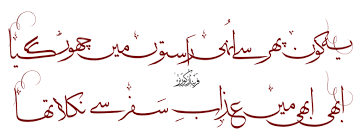 یہ کون پھر سے انہی راستوں میں چھوڑ گیا
ابھی ابھی میں عذابِ سفر سے نکلا تھا